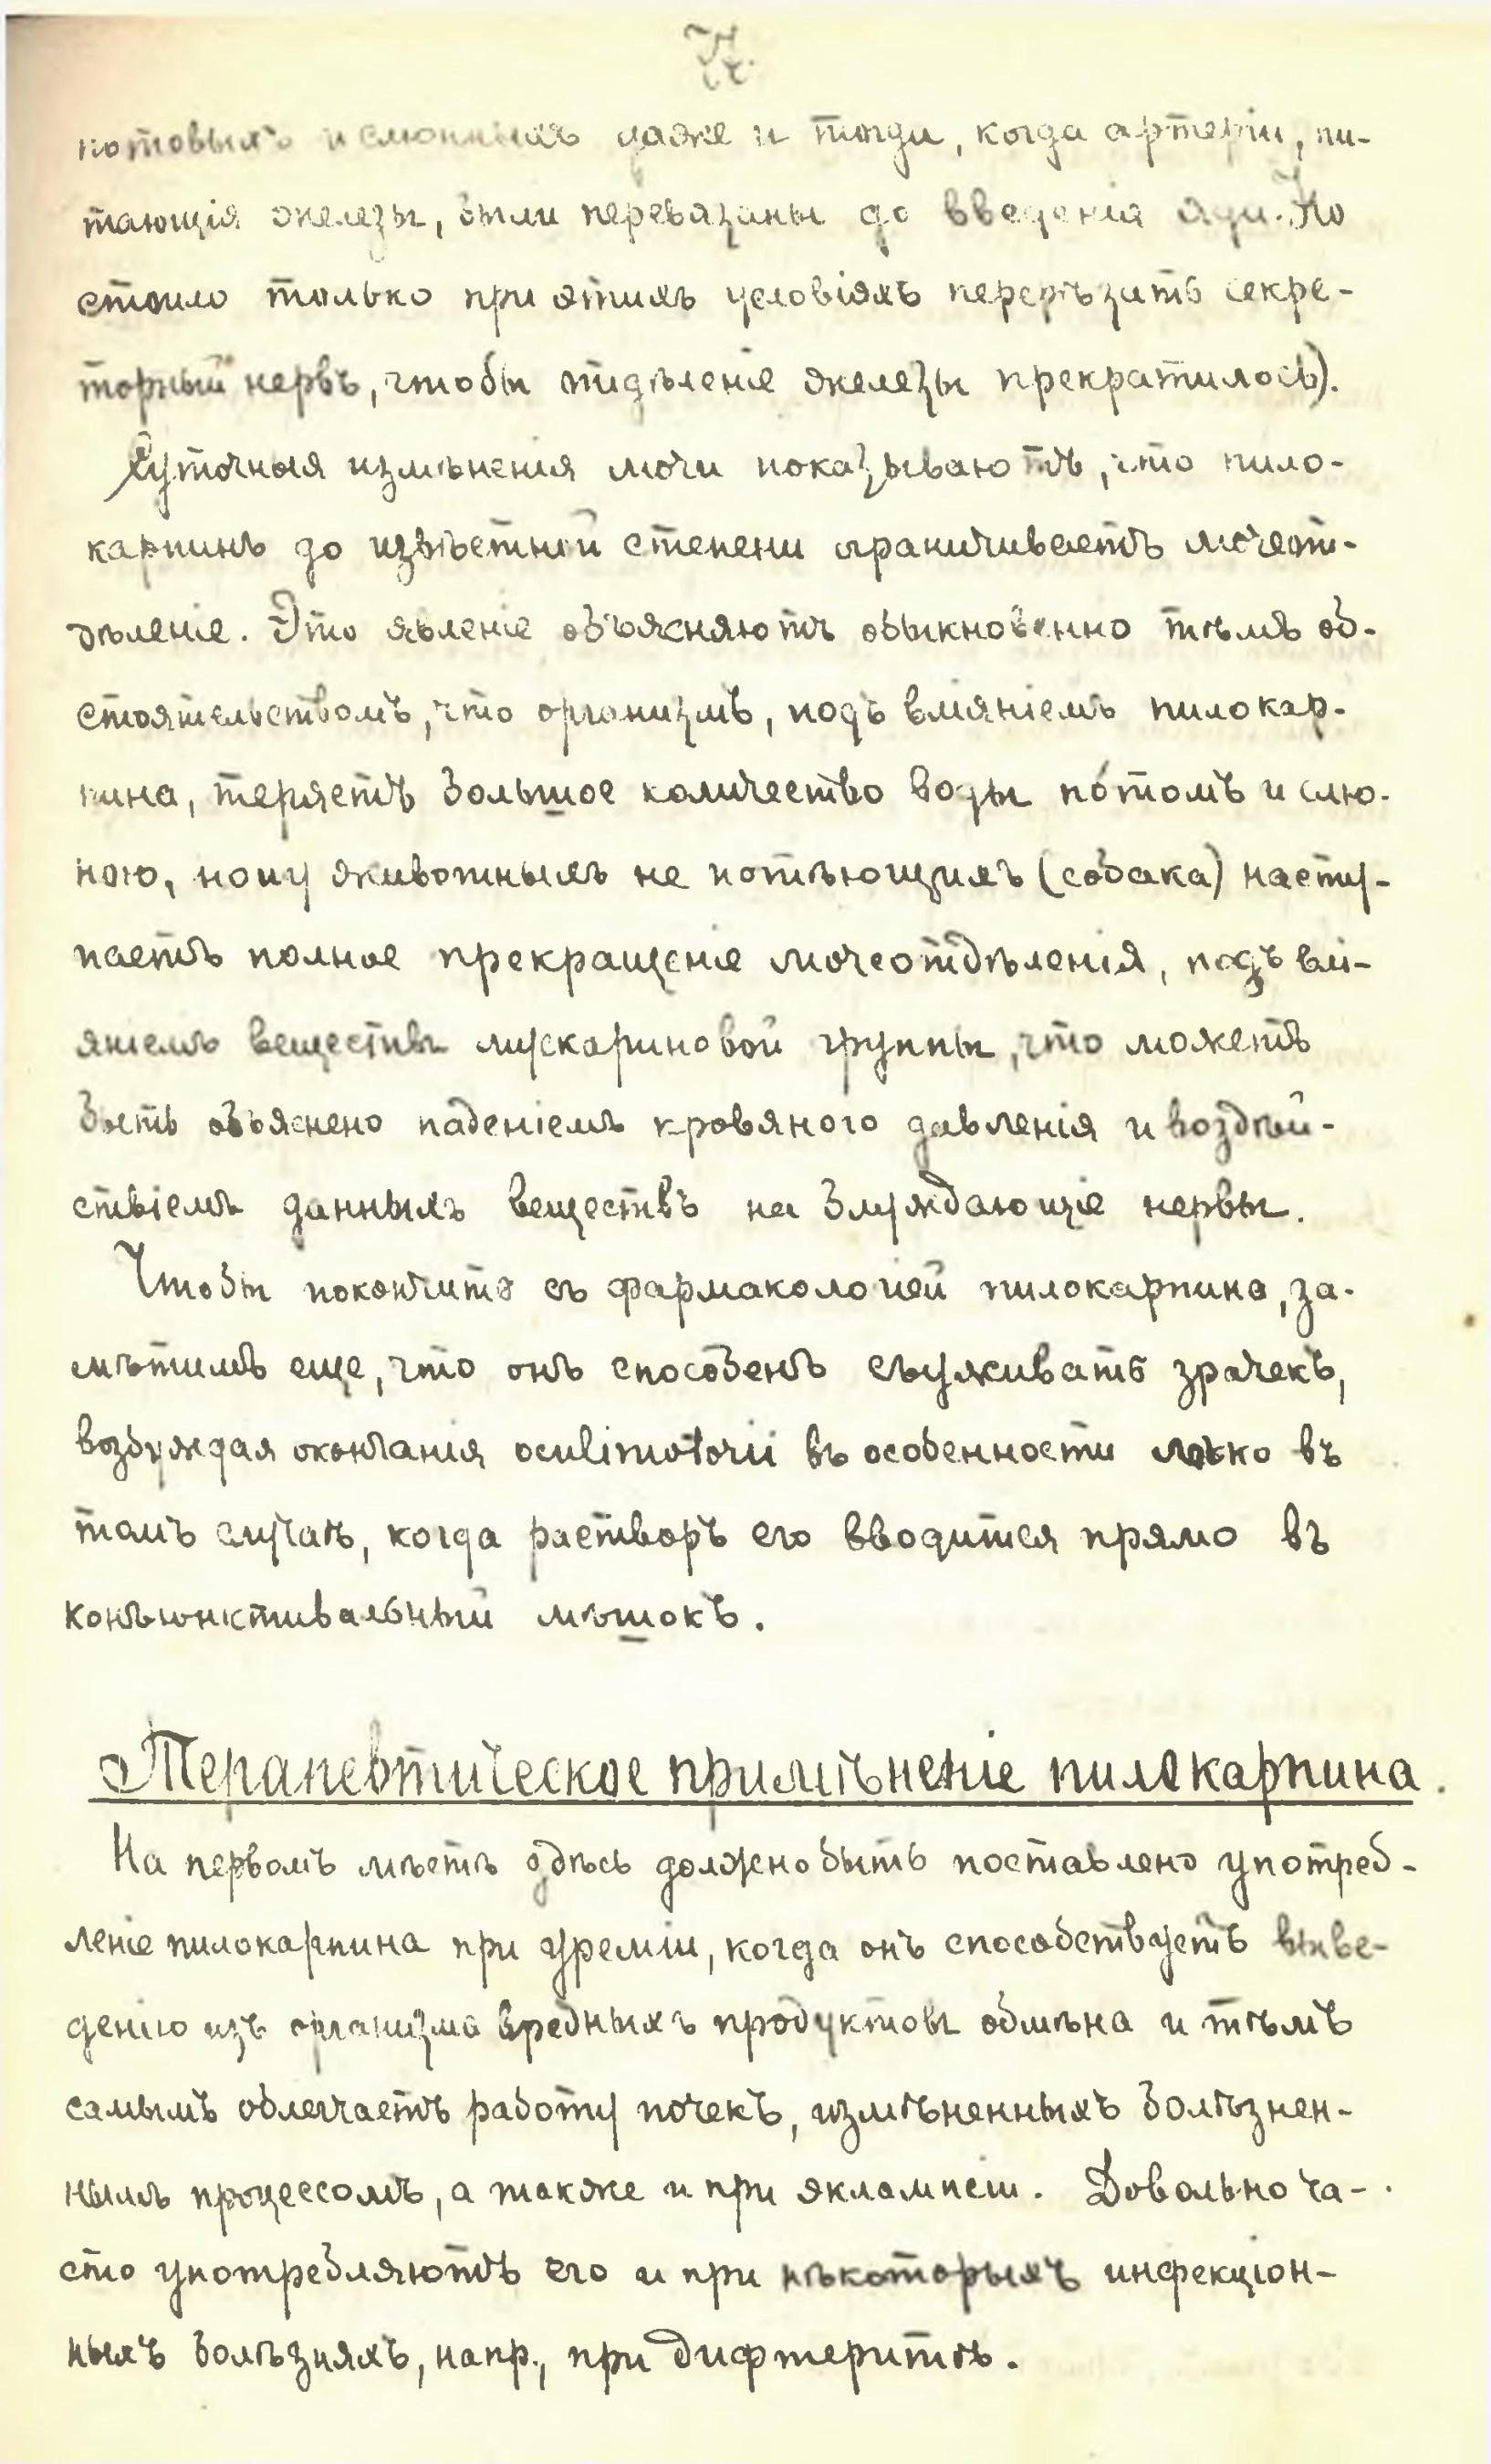 потовыхъ и слюнныхъ даже и тогда, когда артеріи, пи-
тающія железы, были перевязаны до введенія яда. Но
стоило только при этихъ условіяхъ перерѣзать секре-
торный нервъ, чтобы отдѣленіе железы прекратилось).
Суточныя измѣненія мочи показываютъ, что пило-
карпинъ до извѣстной степени ограничиваетъ мочеот-
дѣленіе. Это явленіе объясняютъ обыкновенно тѣмъ об-
стоятельствомъ, что организмъ, подъ вліяніемъ пилокар-
пина, теряетъ большое количество воды по́томъ и слю-
ною, но и у животныхъ не потѣющихъ (собака) насту-
паетъ полное прекращеніе мочеотдѣленія, подъ влі-
яніемъ веществъ мускариновой группы, что можетъ
быть объяснено паденіемъ кровяного давленія и воздѣй-
ствіемъ данныхъ веществъ на блуждающіе нервы.
Чтобы покончить съ фармакологіей пилокарпина, за-
мѣтимъ еще, что онъ способенъ съуживать зрачекъ,
возбуждая окончанія oculimotorii въ особенности легко въ
томъ случаѣ, когда растворъ его вводится прямо въ
конъюнктивальный мѣшокъ.
Терапевтическое примѣненіе пилокарпина.
На первомъ мѣстѣ здѣсь должно быть поставлено употреб-
леніе пилокарпина при уреміи, когда онъ способствуетъ выве-
денію изъ организма вредныхъ продуктовъ обмѣна и тѣмъ
самымъ облегчаетъ работу почекъ, измѣненныхъ болѣзнен-
нымъ процессомъ, а также и при эклампсіи. Довольно ча-
сто употребляютъ его и при нѣкоторыхъ инфекціон-
ныхъ болѣзняхъ, напр., при дифтеритѣ.